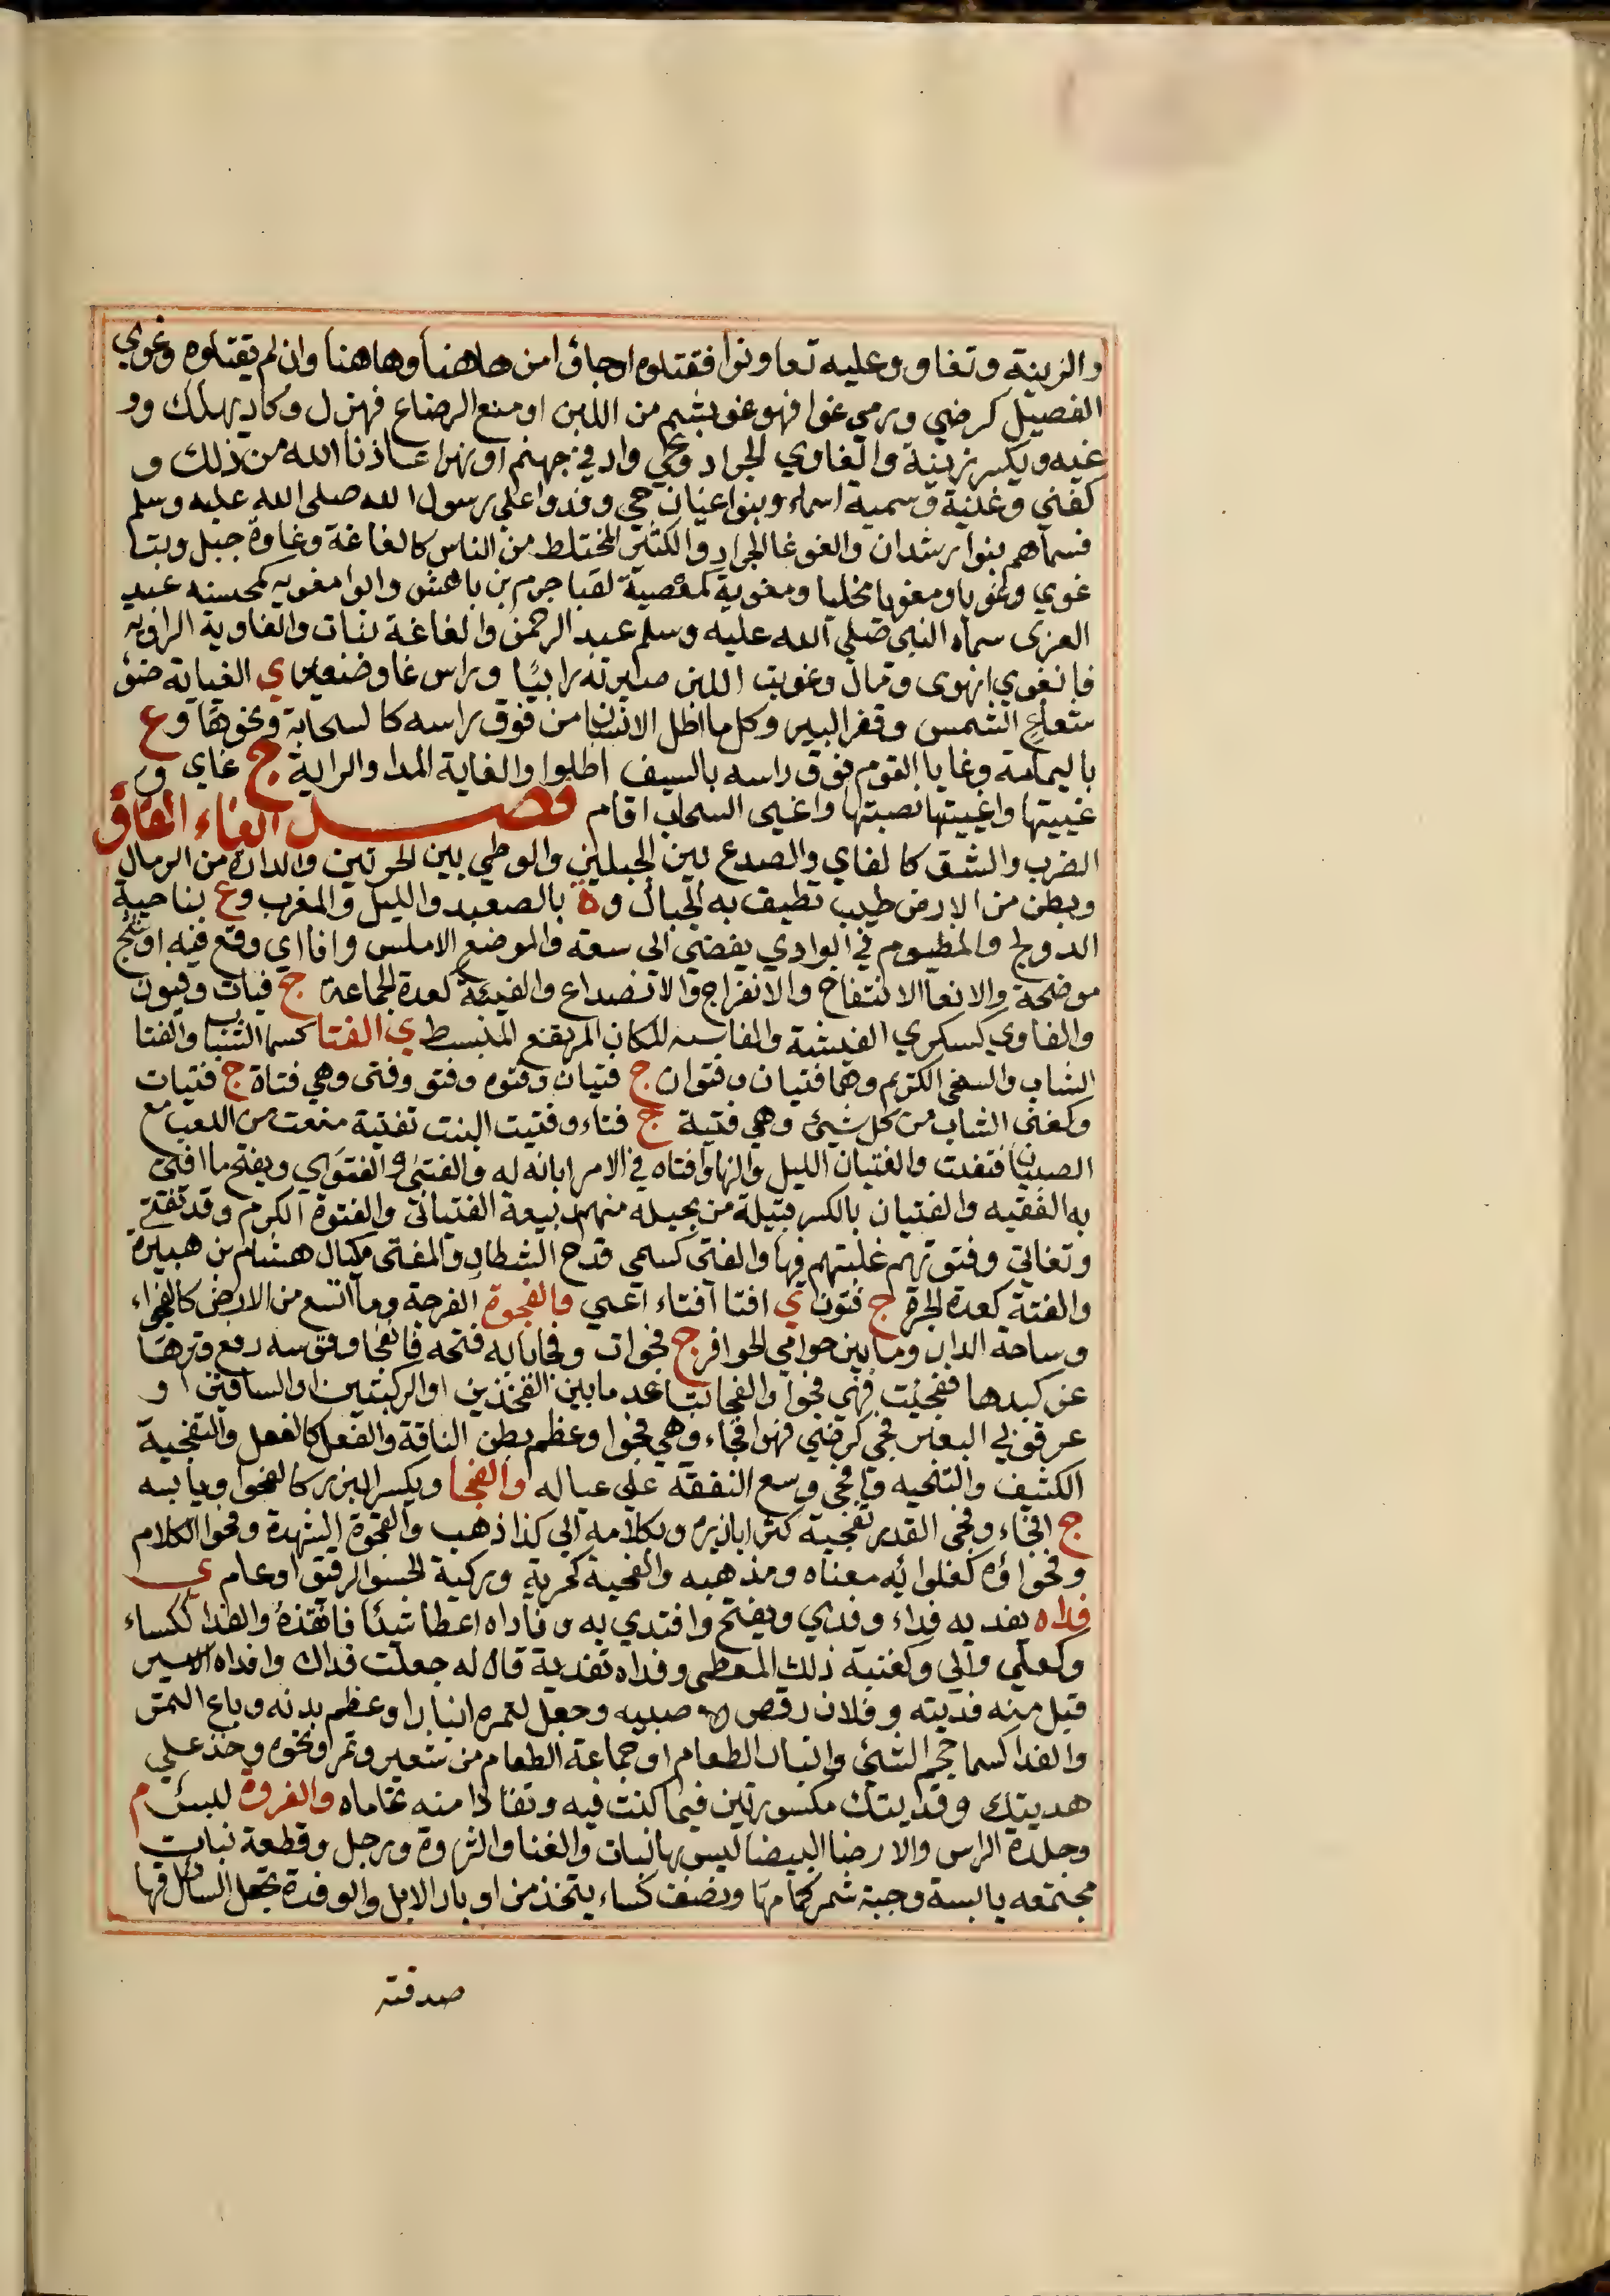 والزينة وتغاو وعليه تعاونوا فقتلوه اوجاؤا من هاهنا وهاهنا وان لم يقتلوه وغوي
الفصيل كرضي ورمي غوا فهو غو بشم من اللبن او منع الرضاع فهزل وكاد يهلك وو
غيه ويكسر زينة والغاوي الجراد وغي واد في جهنم او نهر اعاذنا الله من ذلك و
كغني وغنية وسمية اسماء وبنوا غيان حي وفدوا على رسول الله صلى الله عليه وسلم
فسماهم بنوا رشدان والغوغا الجراد والكثير المختلط من الناس كالغاغة وغاوة جبل وبتا
غوي وغويا ومغويا مخليا ومغوية كمعصية لقبا جرم بن ناهش وابوا مغويه كمحسنه عبد
العزى سماه النبي صلى الله عليه وسلم عبد الرحمن والغاغة نبات والغاوية الراويه
فانغوي انهوى ومال وغويت اللبن صيرته رابيا وراس غاو صغير ي الغياية ضؤ
شعاع الشمس وقعر البير وكل ما اظل الانسان من فوق راسه كالسحابة ونحوها وع
باليمامة وغايا القوم فوق راسه بالسيف اظلوا والغاية المدا والراية ج غاي و
غييتها واغييتها نصبتها واغيى السحاب اقام فصل الفاء الفاو
الضرب والشق كالفاي والصدع بين الجبلين والوطي بين الحرتين والدارة من الرمال
وبطن من الارض طيب تطيف به الجبال وة بالصعيد والليل والمغرب وع بناحية
الدولج والمظيوم في الوادي يفضي الى سعة والموضع الاملس وافااي وقع فيه او شج
موضحة والانغا الانتفاخ والانفراج والانصداع والفيئة كعدة الجماعة ج فيات وفيون
والفاوي كسكري الفيشة والفاسه للمكان المرتفع المنبسط ي الفتا كسما الشباب والفتا
الشاب والسخي الكريم وهما فتيان وفتوان ج فتيان وفتوه وفتو وفتى وهي فتاة ج فتيات
وكغنى الشاب من كل شيء وهي فتية ج فتاء وفتيت البنت تفتية منعت من اللعب مع
الصبيان فتفتت والفتيان الليل والنها وافتاه في الامر ابانه له والفتى والفتوي ويفتح ما افتى
به الفقيه والفتيان بالكسر قبيلة من بجيله منهم ربيعة الفتياني والفتوة الكرم وقد تفتى
وتفاتي وفتوتهم غلبتهم فيها والفتى كسمى قدح الشطار والمفتى مكيال هشام بن هبيرة
والفتة كعدة الجرة ج فتون ي افتا افتاء اعمي والفجوة الفرجة وما اتسع من الارض كالفجواء
وساحة الدار وما بين حوامي الحوافر ج فجوات وفجا بابه فتحه فانفجا وقوسه رفع وترها
عن كبدها ففجيت فهي فجوا والفجا تباعد ما بين الفخذين او الركبتين او الساقين او
عرقوبي البعير فجي كرضي فهو افجاء وهي فجوا وعظم بطن الناقة والفعل كالفعل والتفجية
الكشف والتنحيه وافجى وسع النفقة على عياله والفحا ويكسر البزر كالفحوا ويابسه
ج افحاء وفحى القدر تفحية كثر ابازيره وبكلامه الى كذا ذهب والفحوة الشهدة وفحوا الكلام
وفحواؤه كغلوائه معناه ومذهبه والفحية كحرية وبركية الحسو الرقيق او عام ي
فداه يفديه فداء وفدي ويفتح وافتدي به وفاداه اعطا شيئا فانقذه والفدا ككساء
وكعلي والي وكغنية ذلك المعطى وفداه تفدية قال له جعلت فداك وافداه الاسير
قبل منه فديته وفلان رقص صبيه وجعل لتمره انبارا وعظم بدنه وباع التمر
والفدا كسما حجم الشئ وانبار الطعام او جماعة الطعام من شعير وتمر ونحوه وخذ على
هديتك وفديتك مكسورتين فيما كنت فيه وتفاذا منه تحاماه والفروة لبس م
وجلدة الراس والارضا البيضا ليس بها نبات والغنا والثروة ورجل وقطعة نبات
مجتمعه يابسة وجبة شمر كماها ونصف كساء يتخذ من اوبار الابل والوفدة تجعل السائل فيها
صدقته